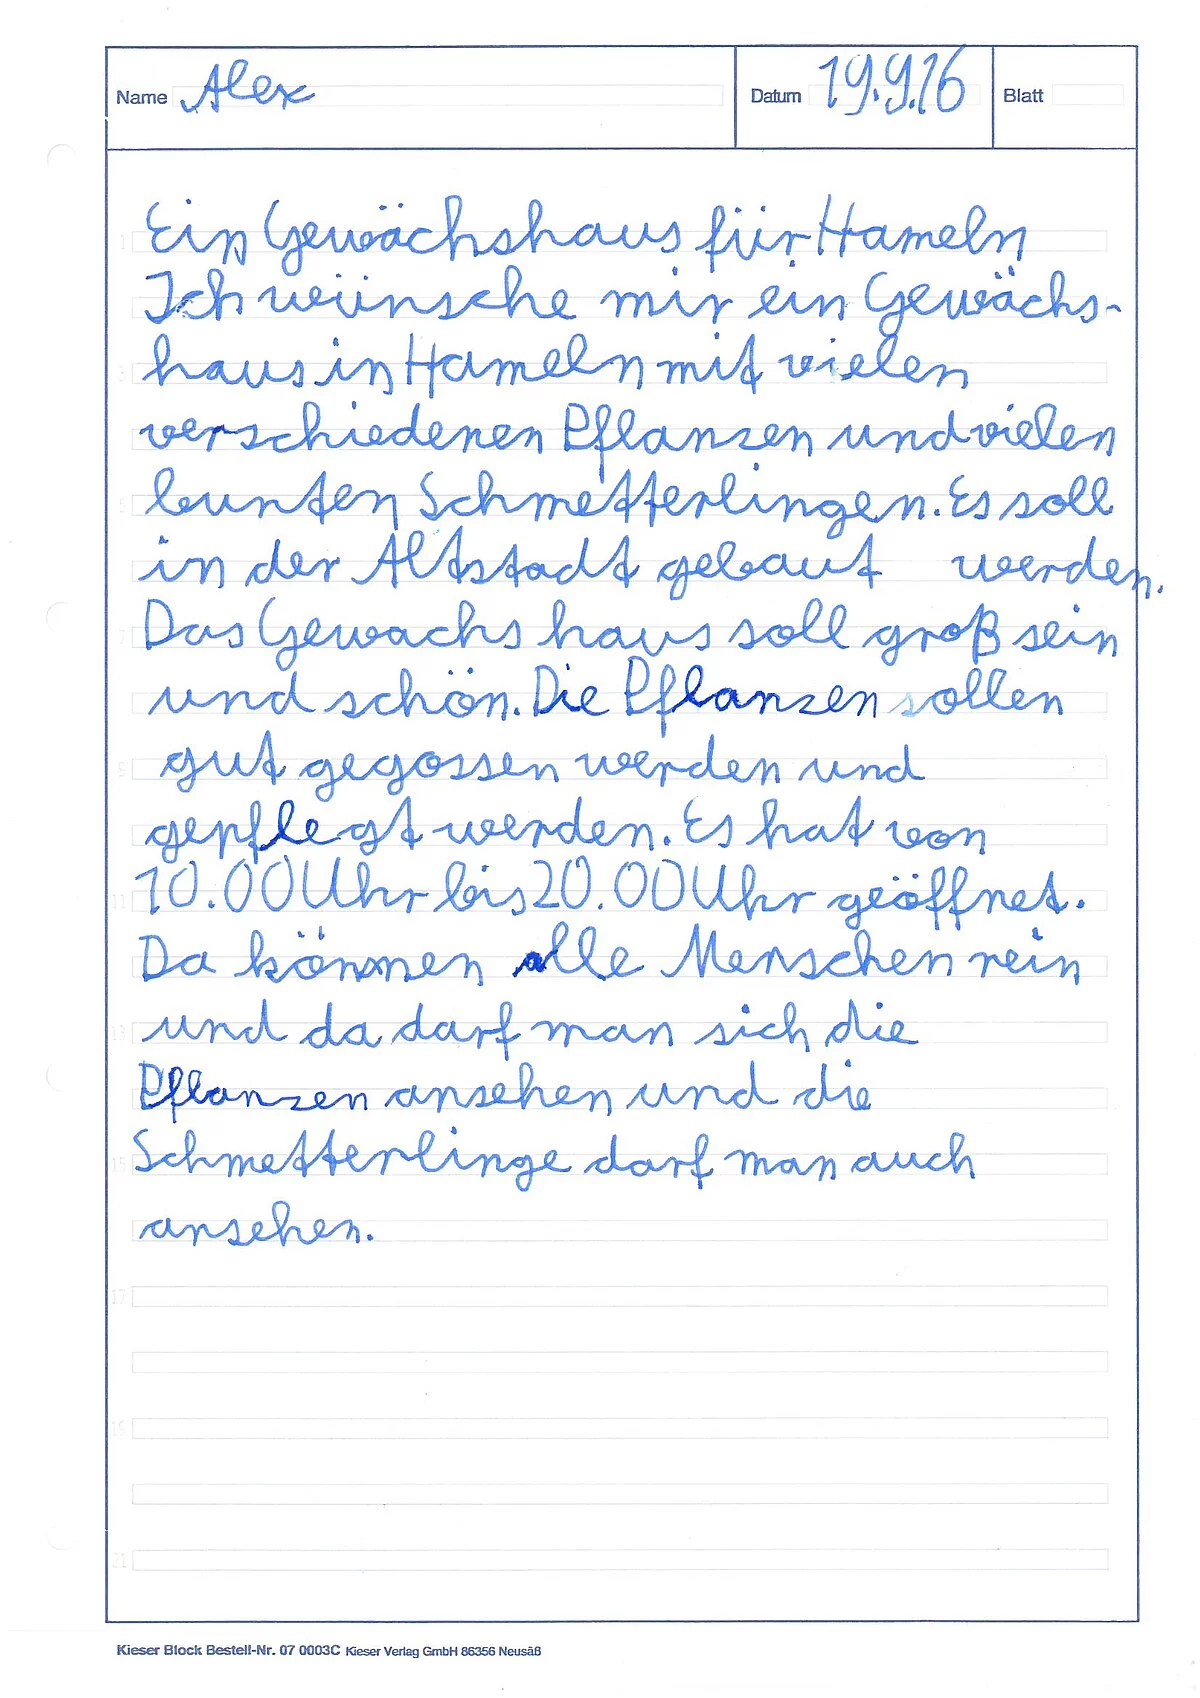 Name Alex Datum 19.9.16 Blatt
Ein Gewächshaus für Hameln
Ich wünsche mir ein Gewächs-
haus in Hameln mit vielen
verschiedenen Pflanzen und vielen
bunten Schmetterlingen. Es soll
in der Altstadt gebaut werden.
Das Gewachs haus soll groß sein
und schön. Die Pflanzen sollen
gut gegossen werden und
gepflegt werden. Es hat von
10.00 Uhr bis 20.00 Uhr geöffnet.
Da können alle Menschen rein
und da darf man sich die
Pflanzen ansehen und die
Schmetterlinge darf man auch
ansehen.
Kieser Block Bestell-Nr. 07 0003C Kieser Verlag GmbH 86356 Neusäß